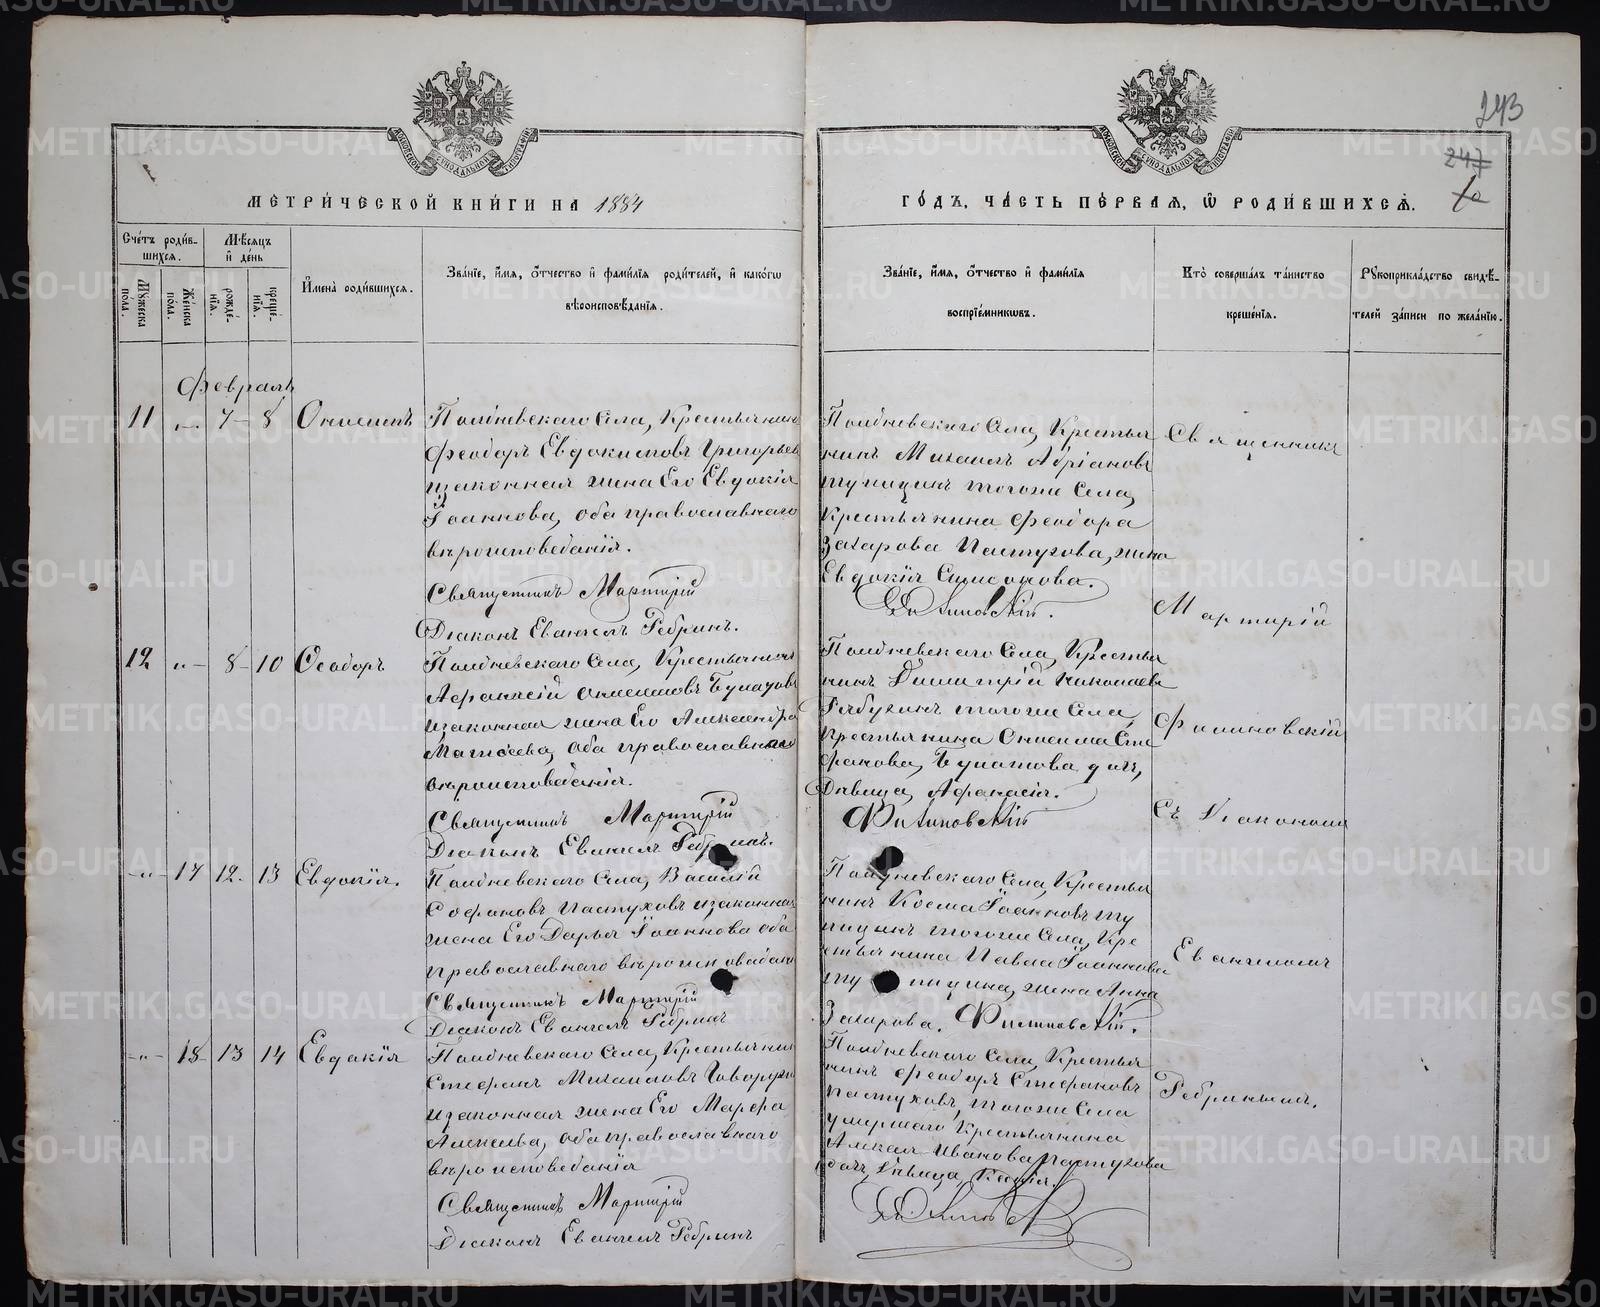 243
247
МЕТРИ́ЧЕСКОЙ КНИ́ГИ НА 1884
ГО́ДЪ, ЧА́СТЬ ПЕ́РВАЯ, Ѡ҆ РОДИ́ВШИХСѦ.
Сче́тъ роди́в-
шихсѧ.
Мꙋ́жеска
по́ла.
Же́нска
по́ла.
Мѣ́сѧцъ
и҆ де́нь
рожде́-
нїѧ.
креще́-
нїѧ.
И҆мена̀ роди́вшихсѧ.
Зва́нїе, и҆́мѧ, ѻ҆́тчество и҆ фами́лїѧ роди́телей, и҆ како́гѡ
вѣ́роисповѣ́данїѧ.
Зва́нїе, и҆́мѧ, ѻ҆́тчество и҆ фами́лїѧ
воспрїе́мникѡвъ.
Кто̀ соверша́лъ та́инство
креще́нїѧ.
Рꙋкоприкла́дство свидѣ́-
телей за́писи по жела́нїю.
Февраль
11 „ 7 8 Онисимъ
Полдневскаго Села, Крестьянинъ
Феодоръ Евдокимовъ Григорьев
и законная жена Его Евдокія
Іоаннова, оба православнаго
вѣроисповеданія.
Священникъ Мартирій
Діаконъ Евангелъ Ребринъ.
Полдневскаго Села, Крестья
нинъ Михаилъ Адріановъ
Тупицинъ тогоже Села,
Крестьянина Феодора
Захарова Пастухова, жена
Евдокія Симеонова.
Филиновскій.
12 „ 8 10 Ѳеодоръ
Полдневскаго Села, Крестьянинъ
Афанасій Онисимовъ Булатовъ
и законная жена Его Александра
Матѳеева, оба православнаго
вѣроисповеданія.
Священникъ Мартирій
Діаконъ Евангелъ Ребринъ.
Полдневскаго Села, Крестья
нинъ Димитрій Николаевъ
Рябухинъ тогоже Села,
Крестьянина Онисима Сте
фанова, Булатова дочь,
Дѣвица Афанасія.
Филиновскій
„ 17 12 13 Евдокія.
Полдневскаго Села, Василій
Софоновъ Пастуховъ и законная
жена Его Дарья Іоаннова оба
православнаго вѣроисповедані
Священникъ Мартирій
Діаконъ Евангелъ Ребринъ
Полдневскаго Села, Крестья
нинъ Косма Іоанновъ Ту
пицинъ тогоже Села, Кре
стьянина Павла Іоаннова
Ту пицина, жена Анна
Захарова. Филиновскій.
„ 18 13 14 Евдокія
Полдневскаго Села, Крестьянин
Стефанъ Михаиловъ Говорухи
и законная жена Его Марфа
Алексіева, оба православнаго
вѣроисповеданія
Священникъ Мартирій
Діаконъ Евангелъ Ребринъ
Полдневскаго Села, Крестья
нинъ Феодоръ Стефановъ
Пастуховъ, тогоже Села
умершаго Крестьянина
Иванова Пастухова
дочь, Дѣвица,
Священникъ
Мартирій
Филиновскій
Съ Діакономъ
Евангеломъ
Ребринымъ.
METRIKI.GASO-URAL.RU